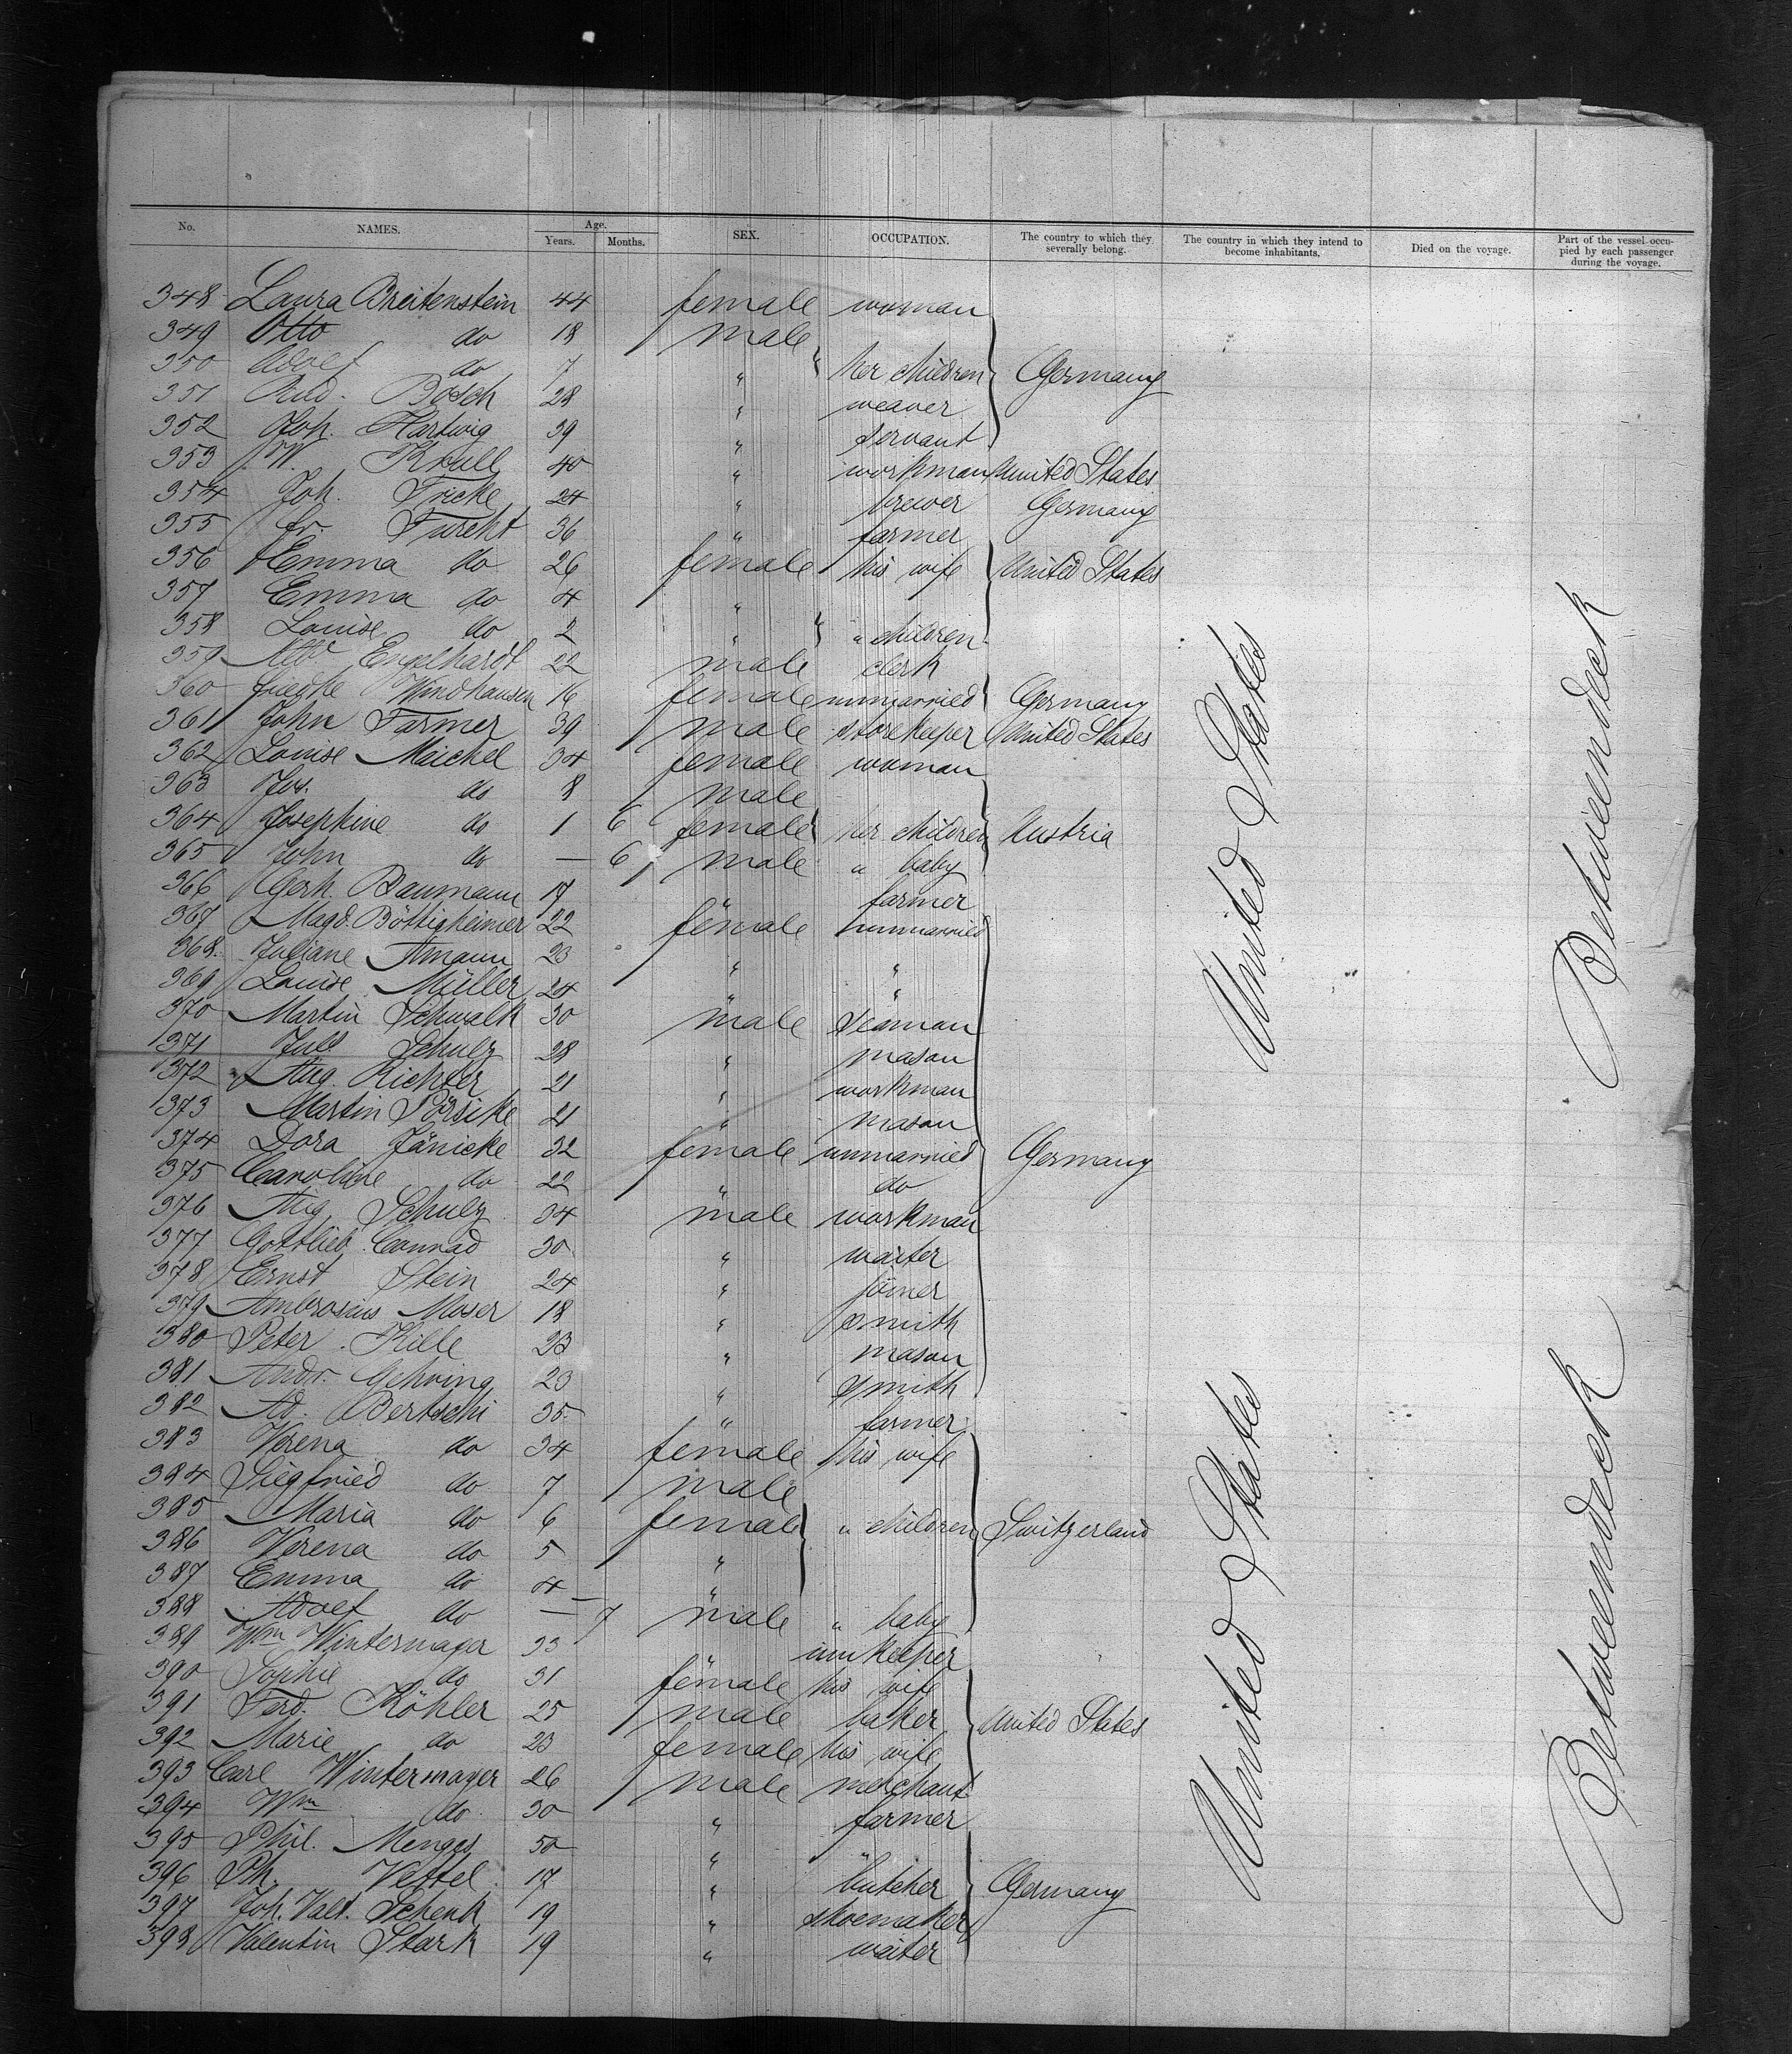 No. NAMES. Age. Years. Months. SEX. OCCUPATION. The country to which they severally belong. The country in which they intend to become inhabitants. Died on the voyage. Part of the vessel occupied by each passenger during the voyage.
348 Laura Breitenstein 44 female woman
349 Otto do 18 male
350 Adolf do 7 " her children Germany
351 Rud. Bosch 28 " weaver
352 Joh. Hartwig 39 " servant
353 W. Krull 40 " workman United States
354 Joh. Fricke 24 " brewer Germany
355 Fr. Furcht 36 " farmer
356 Emma do 26 female his wife United States
357 Emma do 4 "
358 Louise do 2 " " children
359 Engelhardt 22 male clerk
360 Windhausen 16 female unmarried Germany
361 John Farmer 39 male storekeeper United States
362 Louise Maichel 34 female woman
363 Jos. do 8 male
364 Josephine do 1 6 female her children Austria
365 John do — 6 male " baby
366 Gerh. Baumann 17 " farmer
367 Magd. Böttigheimer 22 female unmarried
368 Juliane Amann 23 " "
369 Louise Müller 24 " "
370 Martin Schwalk 30 male seaman
371 Jul. Schulz 28 " mason
372 Aug. Richter 21 " workman
373 Martin Pörsike 21 " mason
374 Dora Jänicke 32 female unmarried Germany
375 Caroline do 22 " do
376 Aug. Schulz 34 male workman
377 Gottlieb Conrad 30 " waiter
378 Ernst Stein 24 " joiner
379 Ambrosius Moser 18 " smith
380 Peter Kille 23 " mason
381 Andr. Gehring 23 " smith
382 Ad. Bertschi 35 " farmer
383 Verena do 34 female his wife
384 Siegfried do 7 male
385 Maria do 6 female " children Switzerland
386 Verena do 5 "
387 Emma do 4 "
388 Adolf do — 7 male " baby
389 Wm Wintermayer 33 " innkeeper
390 Sophie do 31 female his wife
391 Ferd. Köhler 25 male baker United States
392 Marie do 23 female his wife
393 Carl Wintermayer 26 male merchant
394 Wm do 30 " farmer
395 Phil. Menges 50 " "
396 Ph. Vettel 17 " butcher Germany
397 Joh. Valt. Schenk 19 " shoemaker
398 Valentin Stark 19 " waiter
United States
United States
Betweendeck
Betweendeck